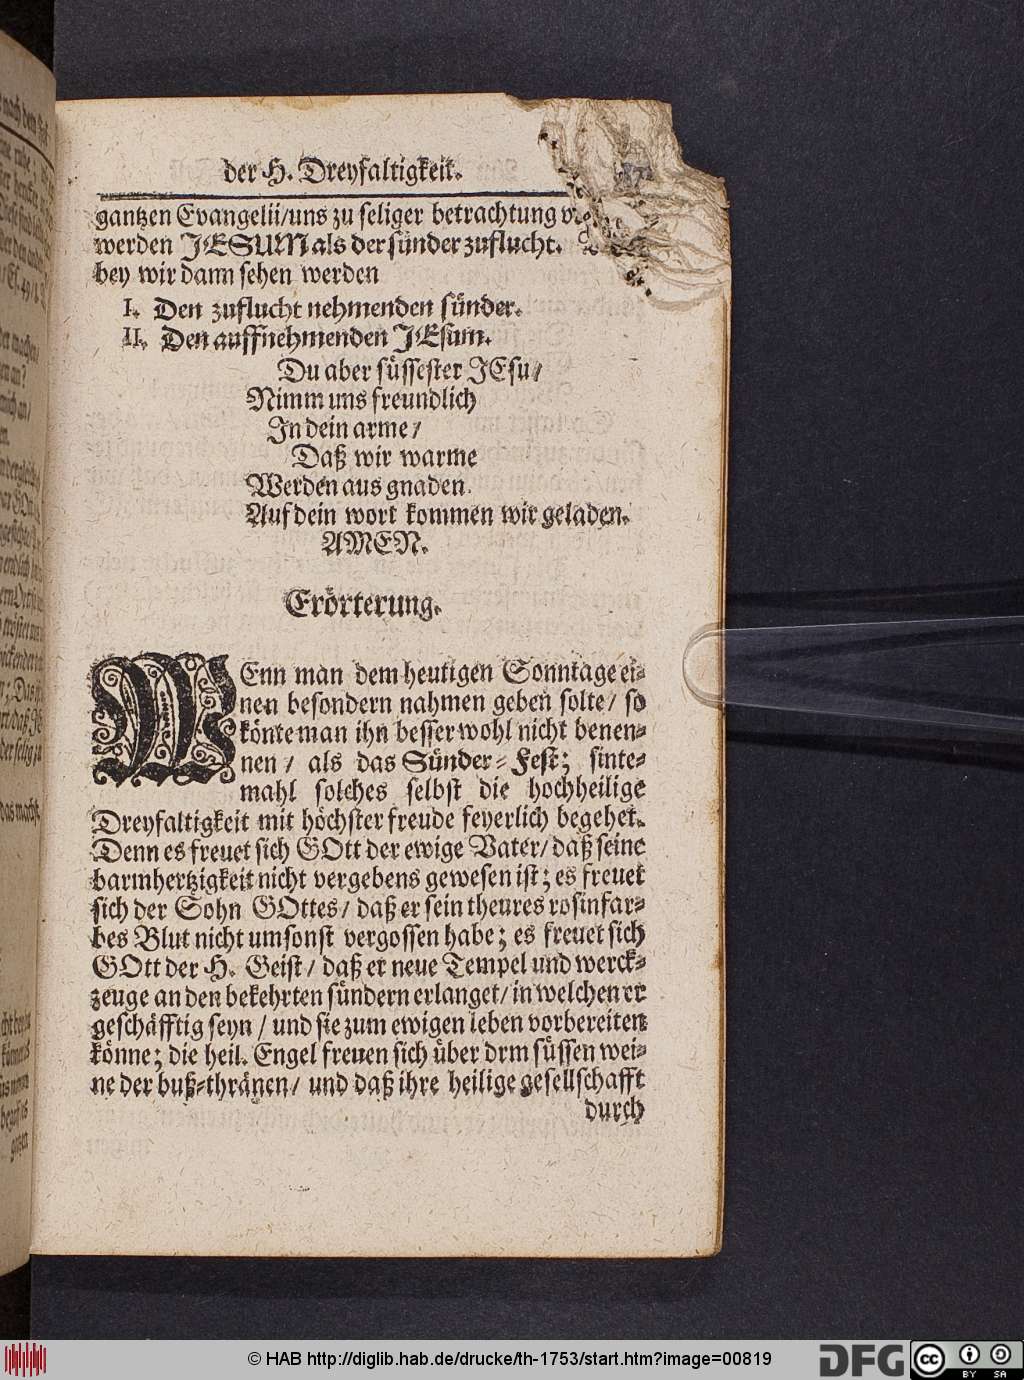 der H. Dreyfaltigkeit.
gantzen Evangelii/uns zu seliger betrachtung
werden JESUM als der sünder zuflucht.
bey wir dann sehen werden
I. Den zuflucht nehmenden sünder.
II. Den auffnehmenden JEsum.
Du aber süssester JEsu/
Nimm uns freundlich
In dein arme/
Daß wir warme
Werden aus gnaden.
Auf dein wort kommen wir geladen.
AMEN.
Erörterung.
WEnn man dem heutigen Sonntage ei-
nen besondern nahmen geben solte/ so
könte man ihn besser wohl nicht benen-
nen/ als das Sünder-Fest; sinte-
mahl solches selbst die hochheilige
Dreyfaltigkeit mit höchster freude feyerlich begehet.
Denn es freuet sich GOtt der ewige Vater/ daß seine
barmhertzigkeit nicht vergebens gewesen ist; es freuet
sich der Sohn GOttes/ daß er sein theures rosinfar-
bes Blut nicht umsonst vergossen habe; es freuet sich
GOtt der H. Geist/ daß er neue Tempel und werck-
zeuge an den bekehrten sündern erlanget/ in welchen er
geschäfftig seyn/ und sie zum ewigen leben vorbereiten
könne; die heil. Engel freuen sich über drm süssen wei-
ne der buß-thränen/ und daß ihre heilige gesellschafft
durch
© HAB http://diglib.hab.de/drucke/th-1753/start.htm?image=00819
DFG
cc
BY SA